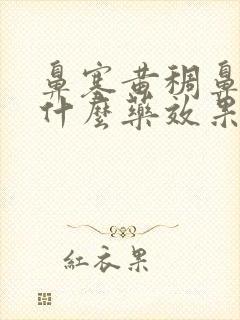 鼻塞黄稠鼻
什麼藥效果
紅衣果